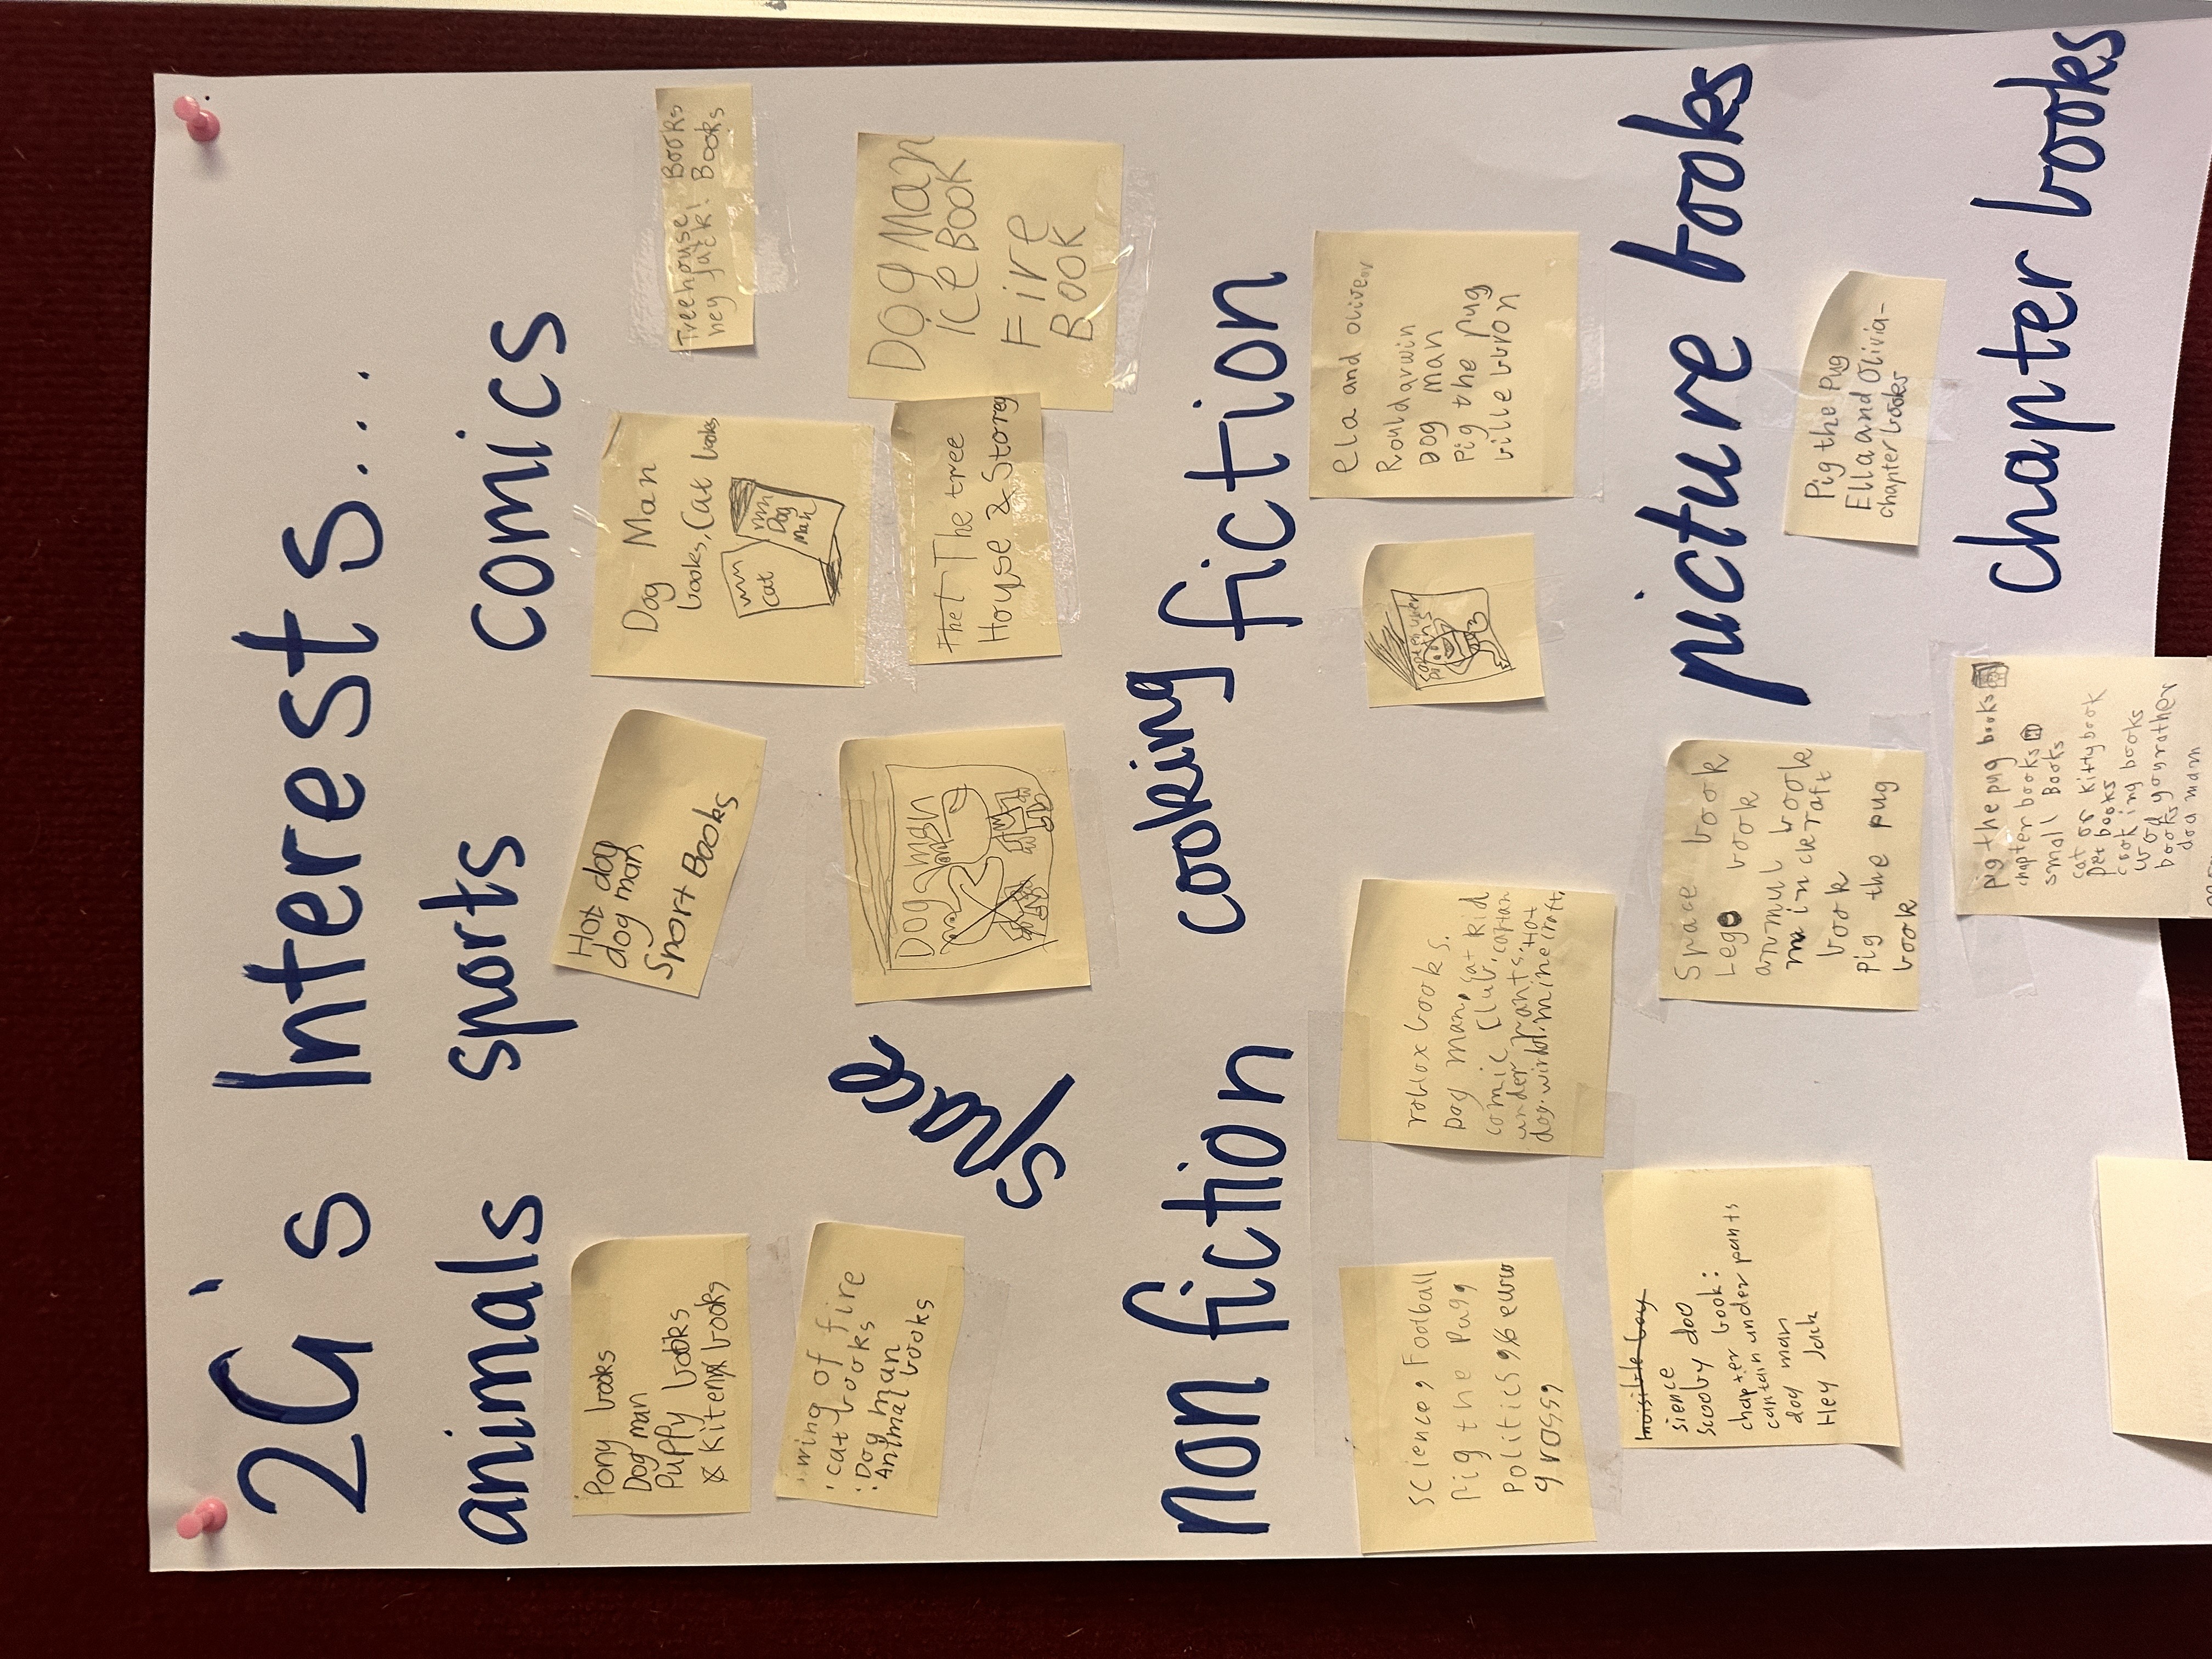 2G's Interests...
animals sports comics
Pony books
Dog man
Puppy books
Kiten books
Hot dog
dog man
Sport Books
Dog Man
books, Cat books
cat
Dog
Man
Treehouse Books
hey jack! Books
wing of fire
cat books
Dog man
Animal books
space
DOG man
The tree
House & Storey
DOG Man
ice BOOK
Fire
BOOK
non fiction cooking fiction
science, Football
Pig the Pugg
Politics
grossg
roblox books.
Dog man, cat kid
comic club, captan
under pants, Hot
dog. minecraft.
ela and oliver
Rouldarwin
DOG man
Pig the pug
bille bron
invisible boy
sience
scooby doo
chapter book:
captain under pants
dog man
Hey Jack
picture books
Space book
Lego book
anmul book
minckraft
book
pig the pug
book
Pig the Pug
Ella and Olivia-
chapter books
chapter books
pig the pug books
chapter books
small Books
cat or kittybook
pet books
cooking books
wod yourather
books
dog man